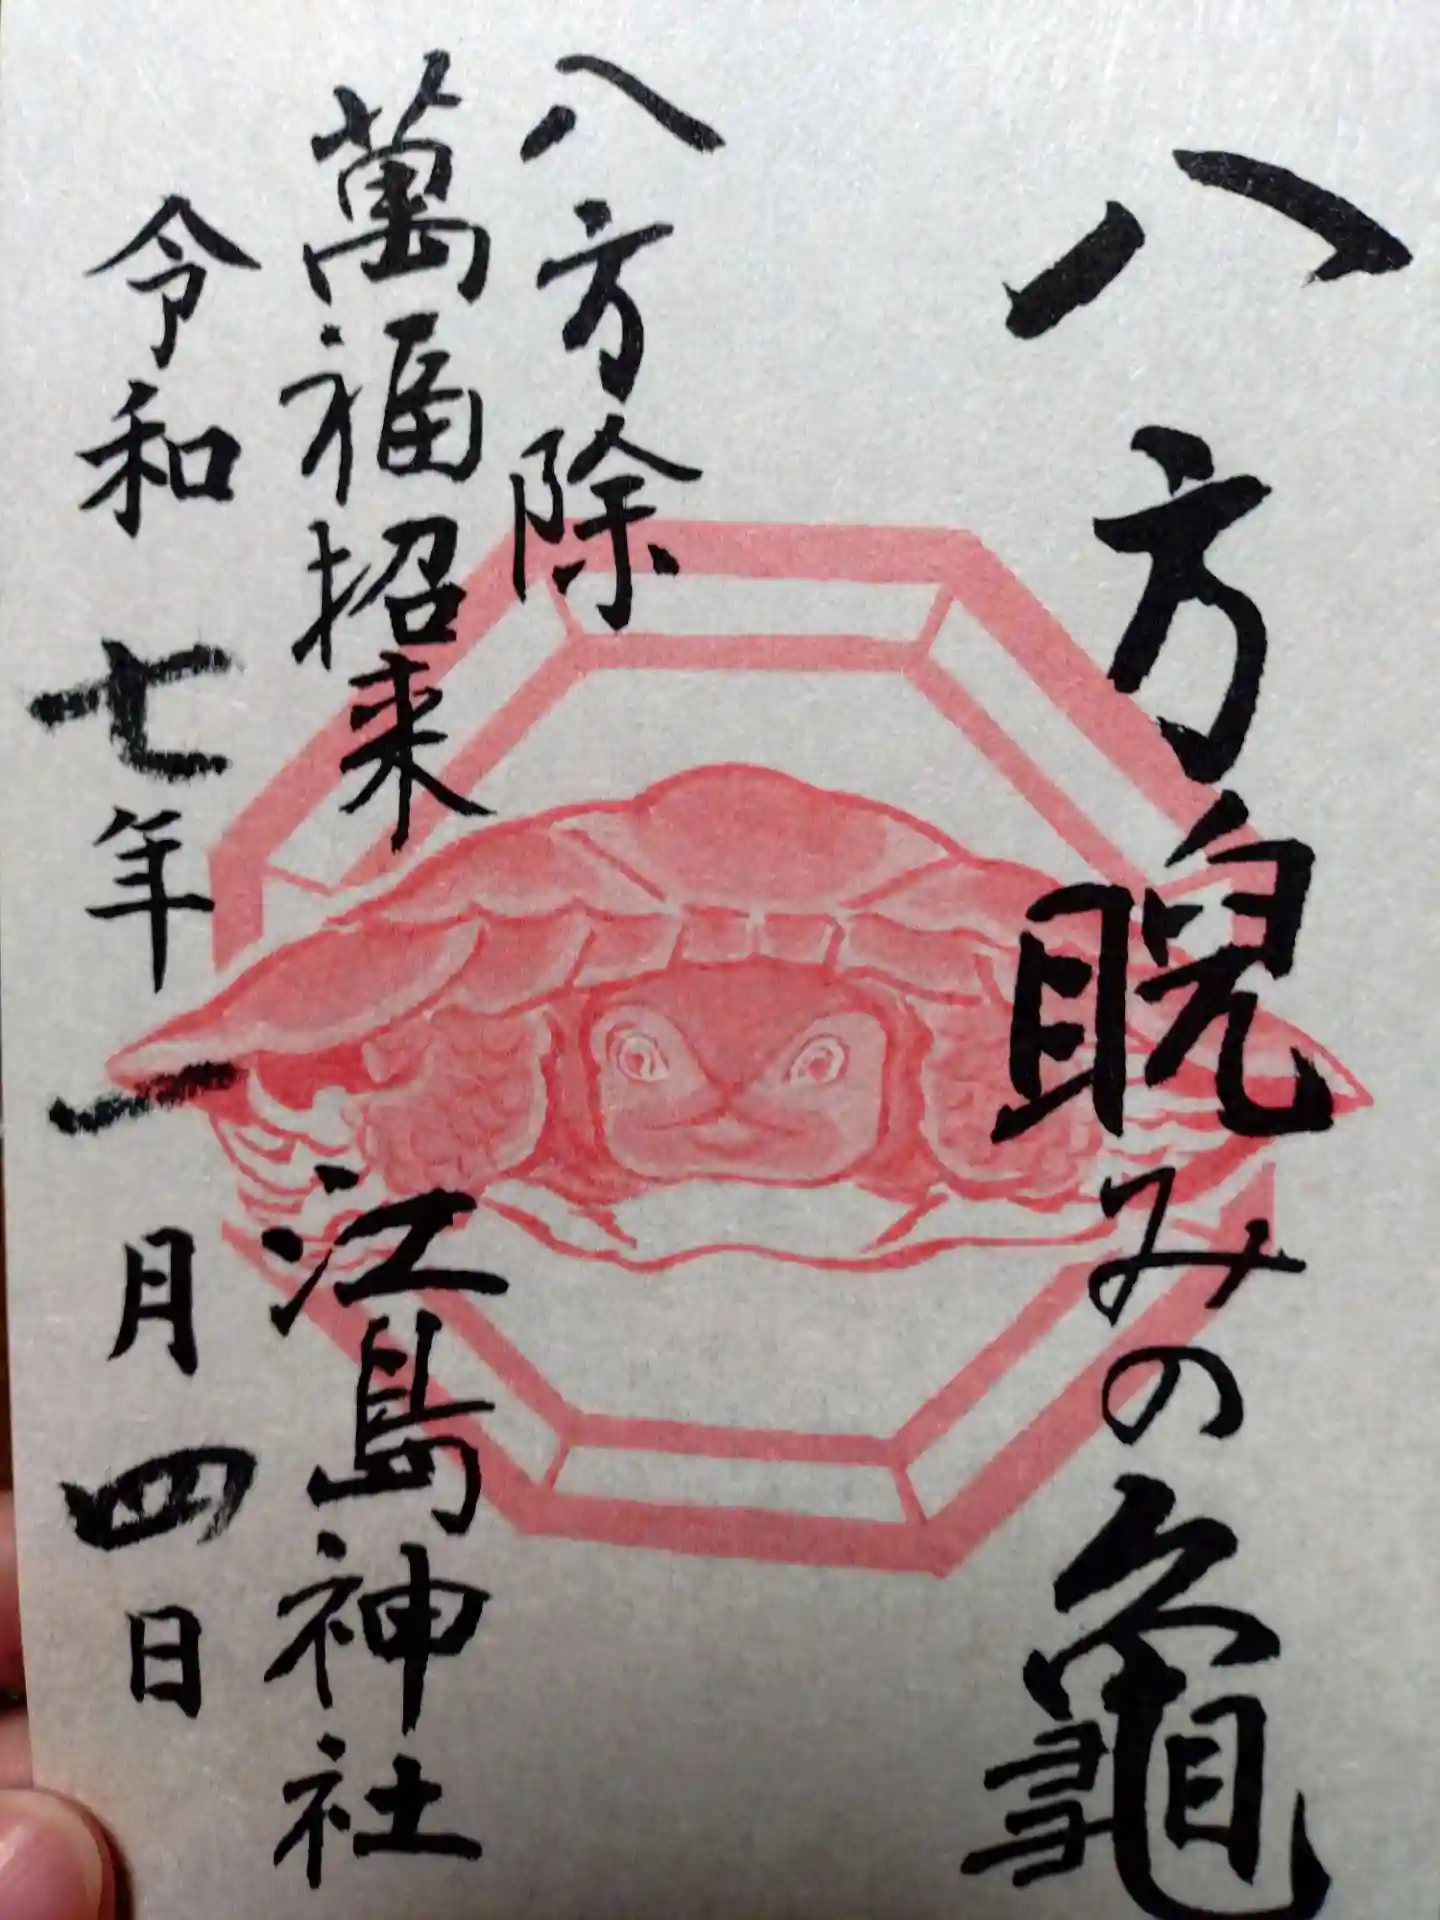 八方睨みの龜
八方除
萬福招来
江島神社
令和七年一月四日